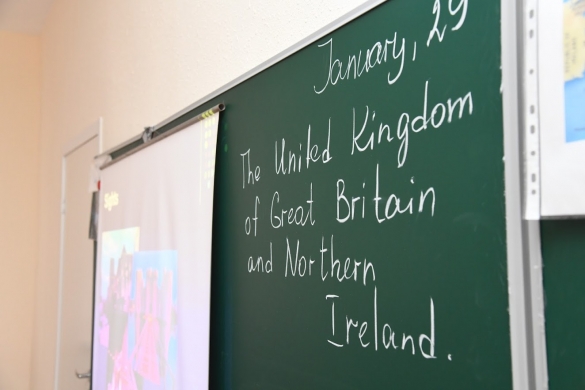 January, 29
The United Kingdom
of Great Britain
and Northern
Ireland.